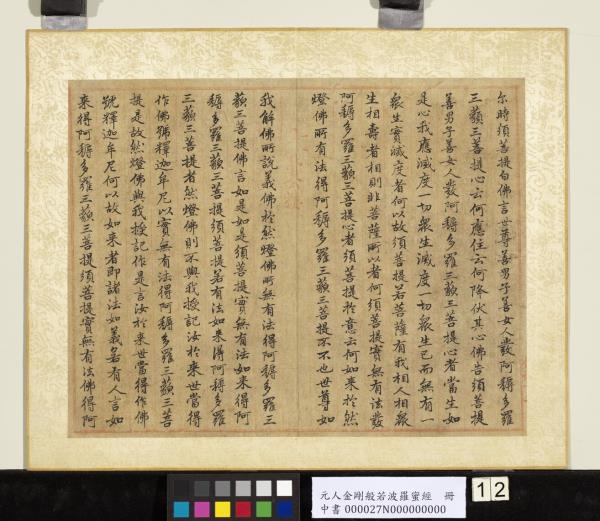 尒時須菩提白佛言世尊善男子善女人發阿耨多羅
三藐三菩提心云何應住云何降伏其心佛告須菩提
善男子善女人發阿耨多羅三藐三菩提心者當生如
是心我應滅度一切衆生滅度一切衆生已而無有一
衆生實滅度者何以故須菩提若菩薩有我相人相衆
生相壽者相則非菩薩所以者何須菩提實無有法發
阿耨多羅三藐三菩提心者須菩提於意云何如來於然
燈佛所有法得阿耨多羅三藐三菩提不不也世尊如
我解佛所說義佛於然燈佛所無有法得阿耨多羅三
藐三菩提佛言如是如是須菩提實無有法如來得阿
耨多羅三藐三菩提須菩提若有法如來得阿耨多羅
三藐三菩提者然燈佛則不與我授記汝於來世當得
作佛號釋迦牟尼以實無有法得阿耨多羅三藐三菩
提是故然燈佛與我授記作是言汝於來世當得作佛
號釋迦牟尼何以故如來者即諸法如義若有人言如
來得阿耨多羅三藐三菩提須菩提實無有法佛得阿
元人金剛般若波羅蜜經 冊
中書 000027N000000000
12